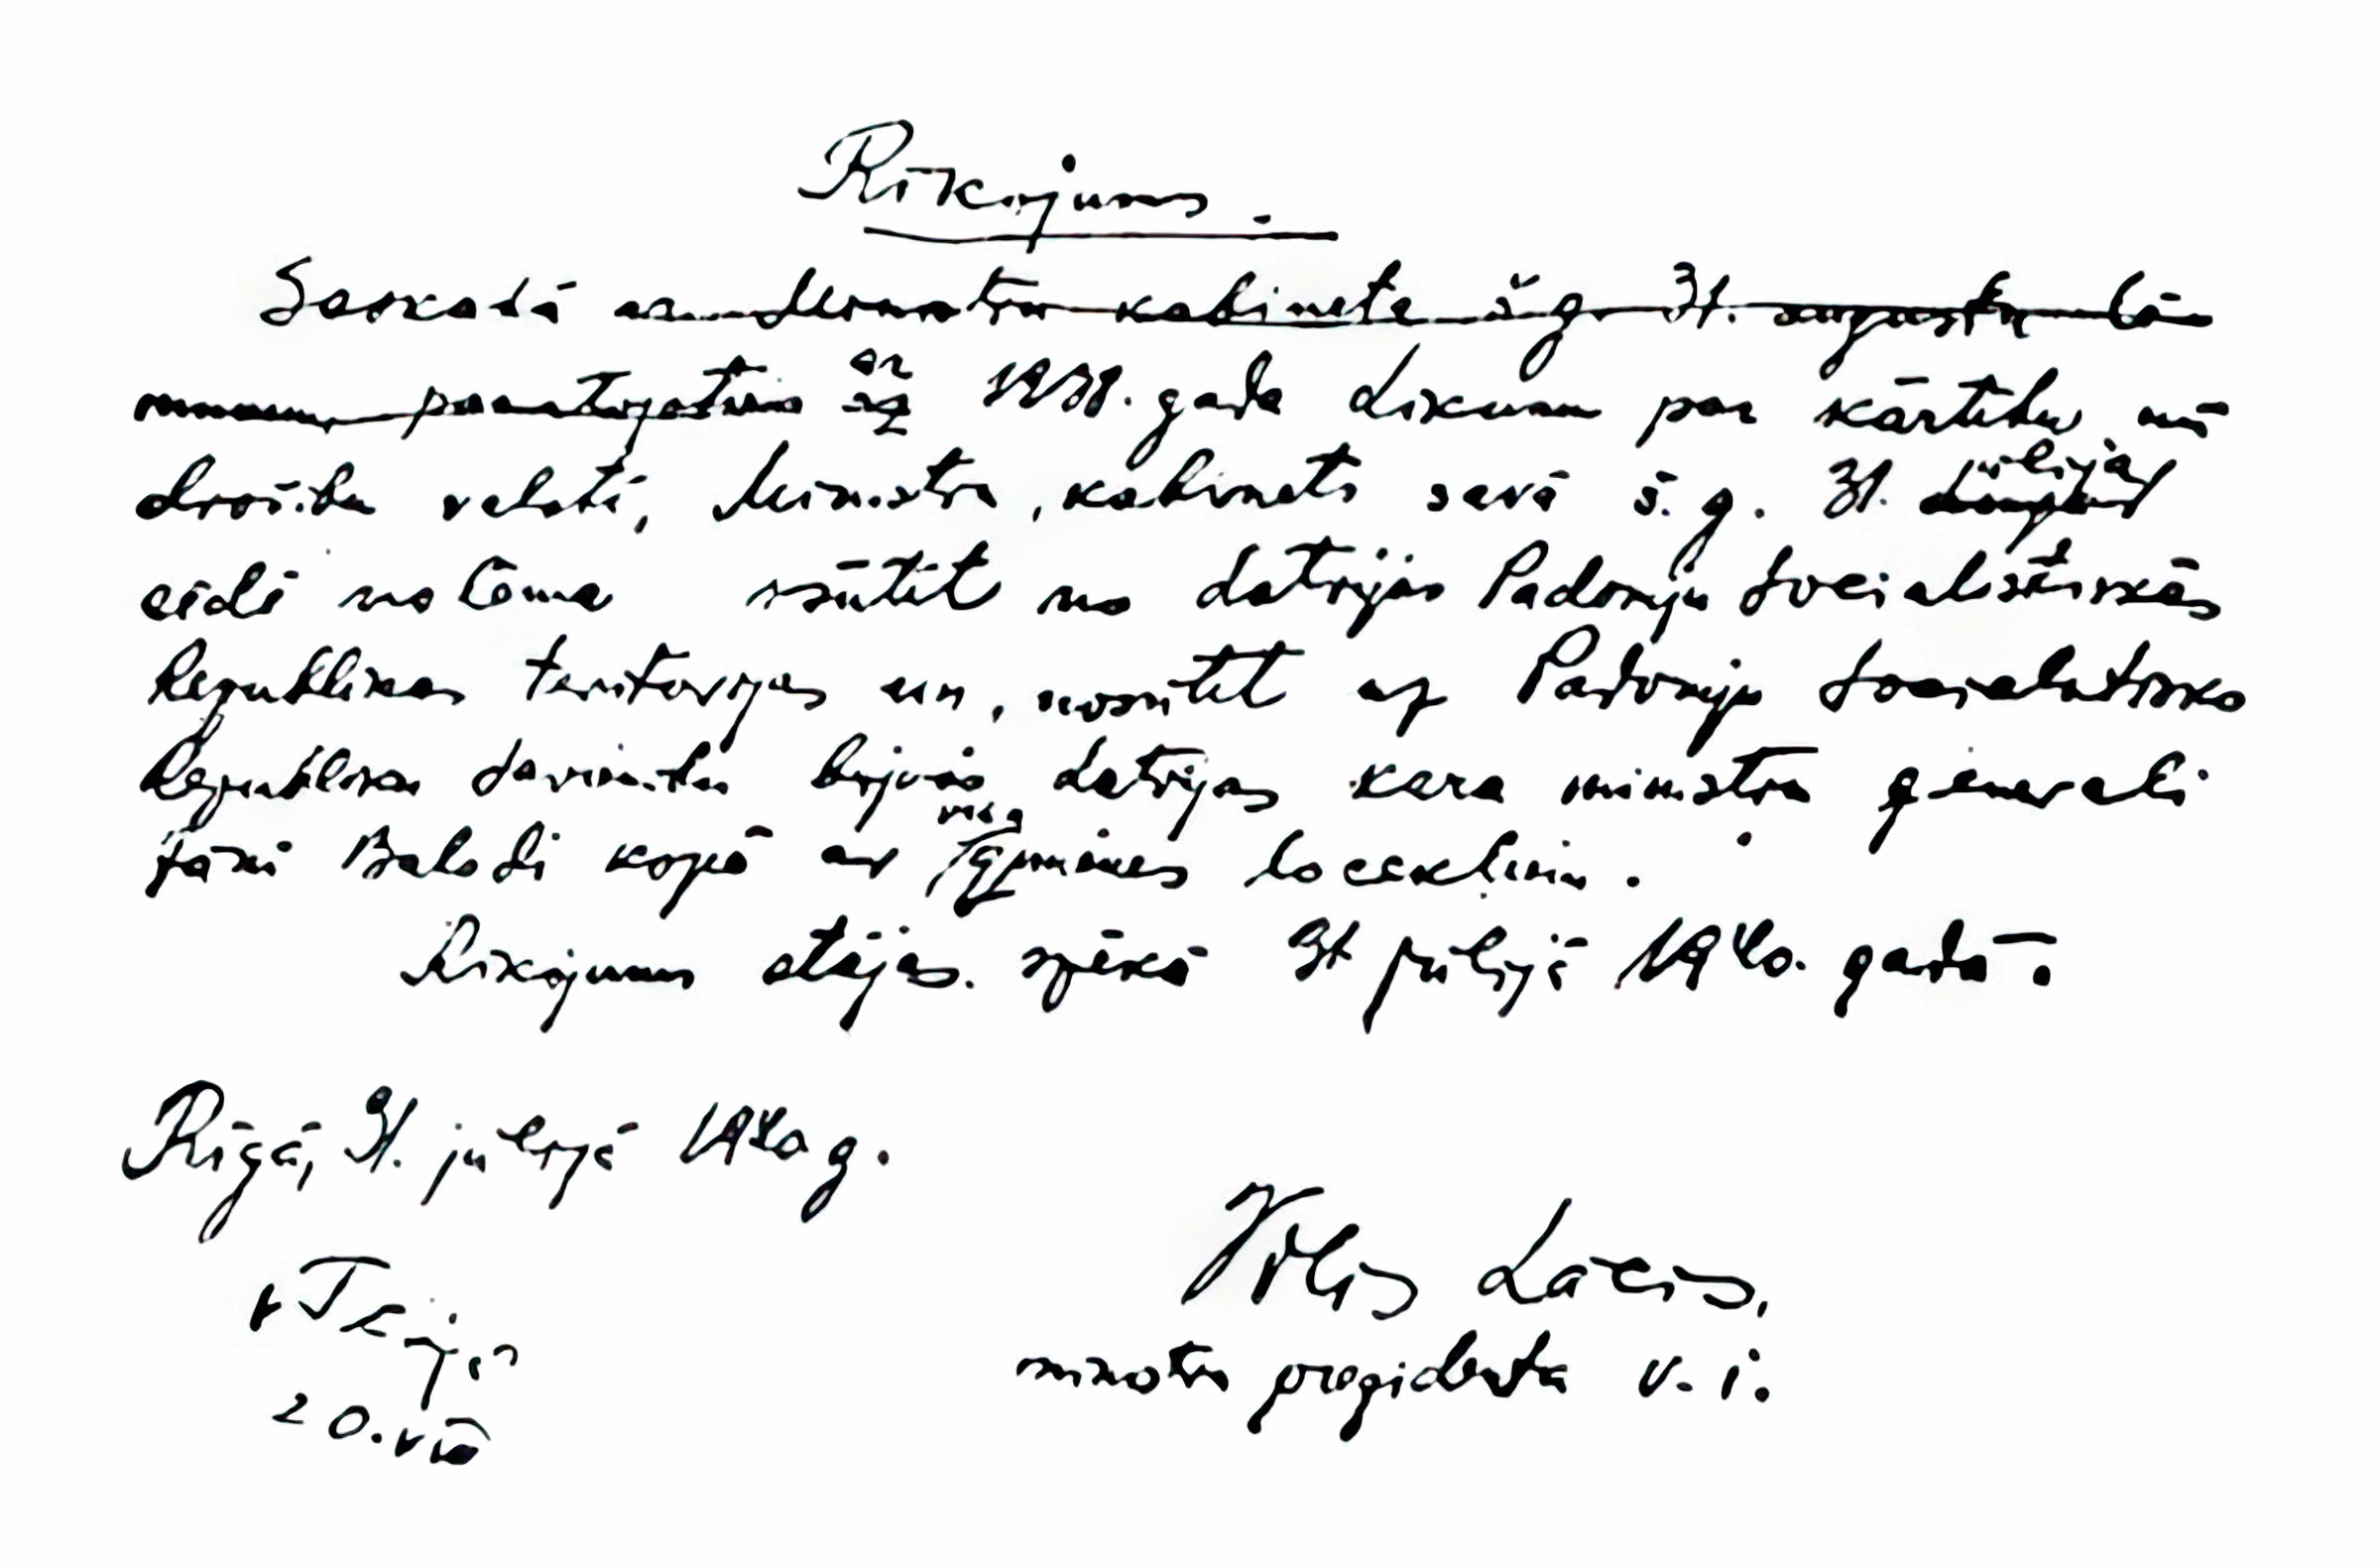 Rīkojums.
Saskaņā ar Ministru kabineta š.g. 31. augusta lē
mumu, pamatojoties ar uz 1938. gada likumu par kārtību un
drošību valstī, Ministru kabinets savā š.g. 31. jūlija
sēdē nolēma izsūtīt no Latvijas Padomju Sociālistiskās
Republikas teritorijas un nosūtīt uz Padomju Sociālistisko
Republiku Savienību bijušo Latvijas kara ministru ģenerāli
Jāni Balodi kopā ar viņa ģimenes locekļiem.
Rīkojums stājas spēkā 31 jūlijā 1940. gadā.
Rīgā, 31. jūlijā 1940 g.
Vilis Lācis,
ministru prezidenta v. i.
20. VIII